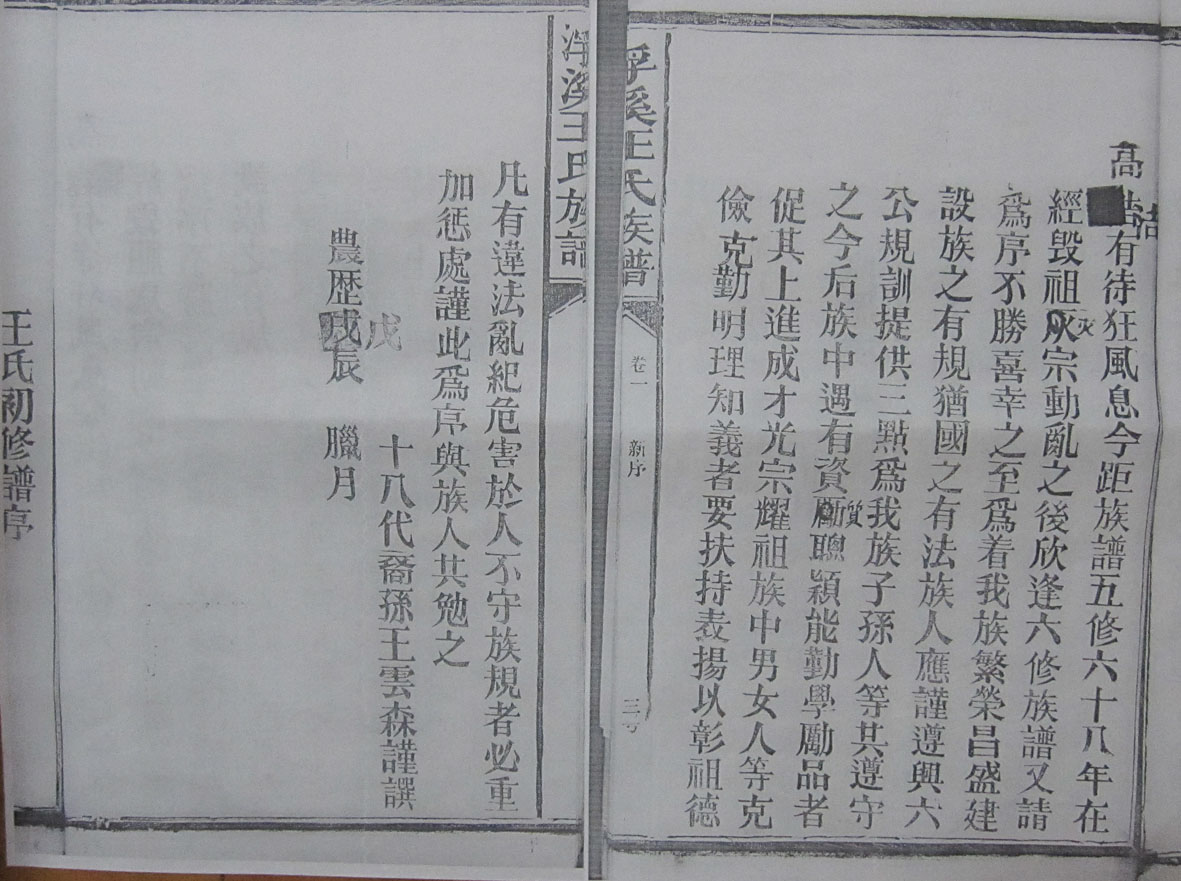 高浩有待狂風息今距族譜五修六十八年在
經毀祖灭宗動亂之後欣逢六修族譜又請
爲序不勝喜幸之至爲着我族繁榮昌盛建
設族之有規猶國之有法族人應謹遵興六
公規訓提供三點爲我族子孫人等其遵守
之今后族中遇有資質聰穎能勤學勵品者
促其上進成才光宗耀祖族中男女人等克
儉克勤明理知義者要扶持表揚以彰祖德
浮溪王氏族譜
卷一
新序
浮溪王氏族譜
凡有違法亂紀危害於人不守族規者必重
加惩處謹此爲序與族人共勉之
十八代裔孫王雲森謹譔
農歷戊辰 臘月
王氏初修譜序